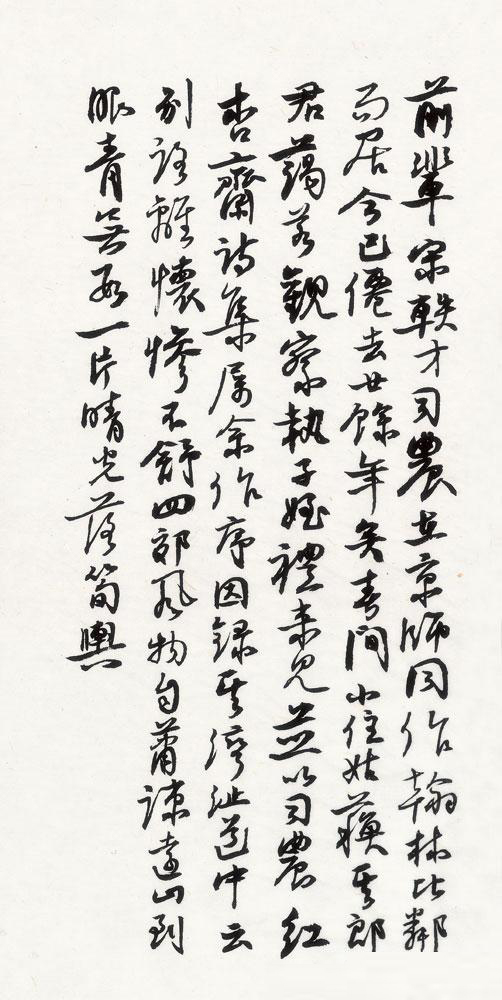 前輩宋軼才司農在京師同作翰林比鄰
而居今已僊去廿餘年矣春間小住姑蘇其郎
君藹若觀察執子姪禮來見並以司農紅
杏齋詩集屬余作序因録其灣沚道中云
別語離懷慘不舒四郊風物自蕭疎遠山到
眼青無數一片晴光落筍輿